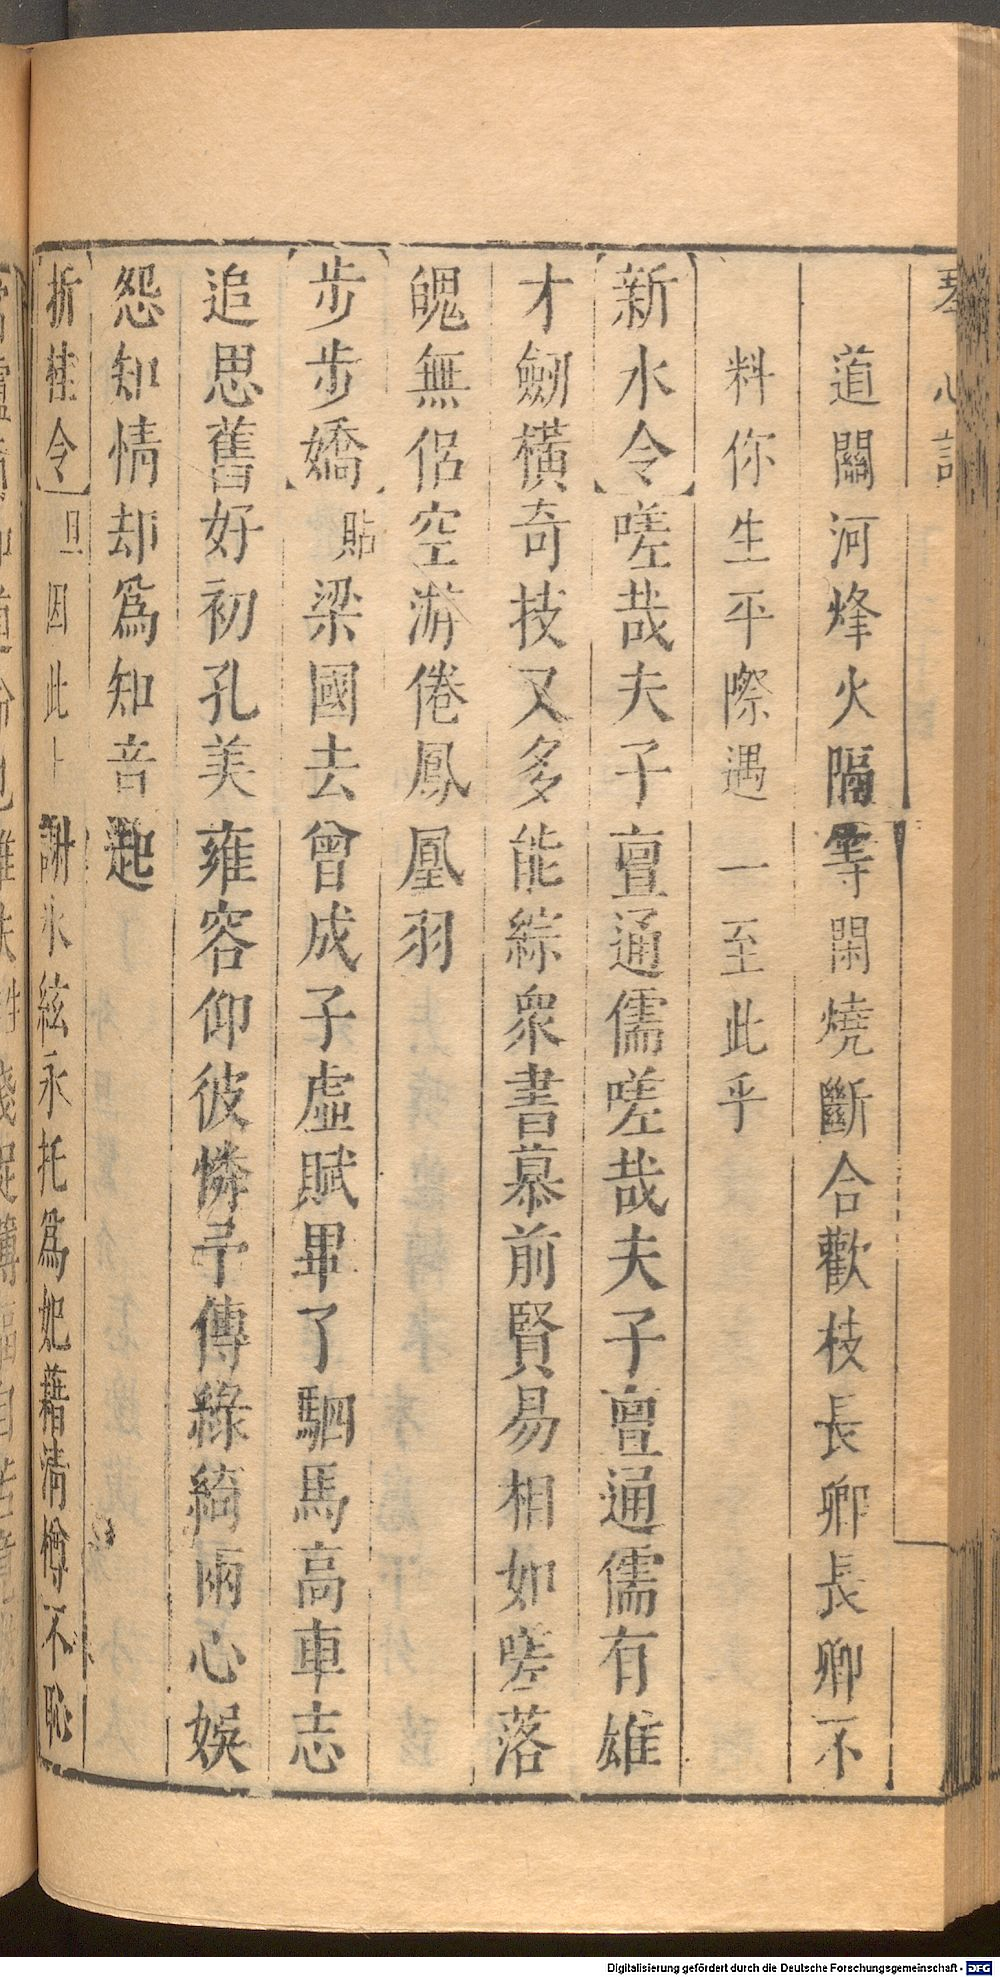 琴心記
道關河烽火隔等閑燒斷合歡枝長卿長卿不
料你生平際遇一至此乎
新水令 嗟哉夫子亶通儒嗟哉夫子亶通儒有雄
才劒橫奇技又多能綜衆書慕前賢易相如嗟落
魄無侶空游倦鳳凰羽
步步嬌 貼 梁國去曾成子虛賦畢了駟馬高車志
追思舊好初孔美雍容仰彼憐予傳綠綺兩心娛
怨知情却爲知音起
折桂令 旦 因此上謝氷絃永托爲妃藉清樽不恥
Digitalisierung gefördert durch die Deutsche Forschungsgemeinschaft - DFG